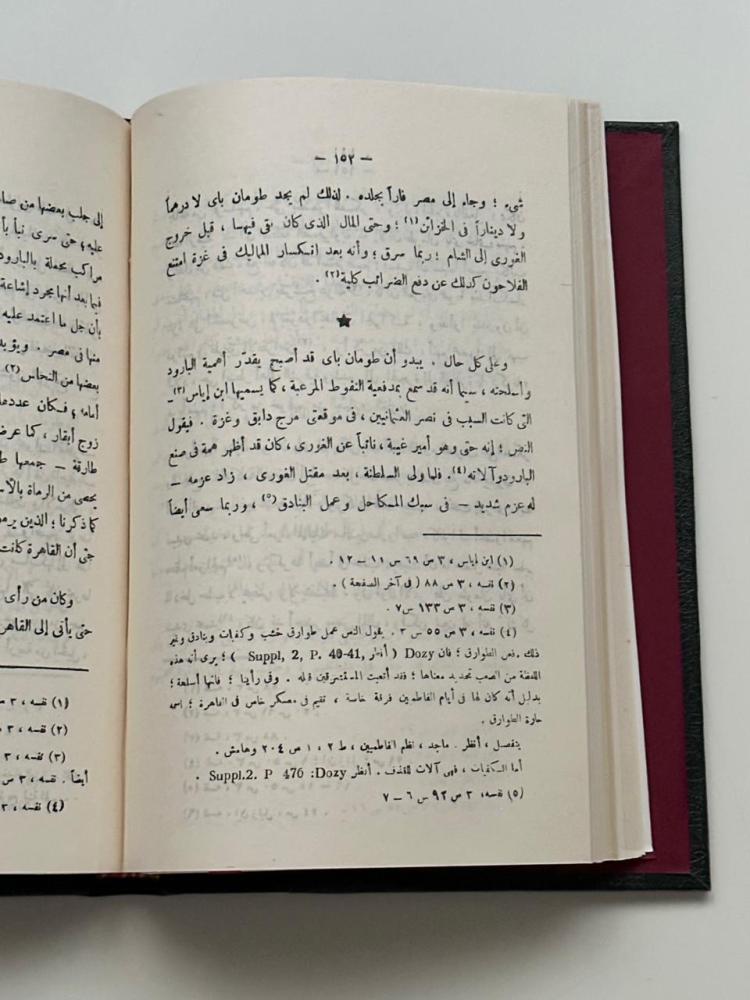 — ١٥٢ —
شيء ؛ وجاء إلى مصر فاراً بجلده . لذلك لم يجد طومان باى لا درهماً
ولا ديناراً فى الخزائن (١) ؛ وحتى المال الذى كان بقى فيها ، قبل خروج
الغورى إلى الشام ؛ ربما سرق ؛ وأنه بعد انكسار المماليك فى غزة امتنع
الفلاحون كذلك عن دفع الضرائب كلية (٢) .
★
وعلى كل حال . يبدو أن طومان باى قد أصبح يقدّر أهمية البارود
وأسلحته ، سيما أنه قد سمع بمدفعية النفوط المرعبة ، كما يسميها ابن إياس (٣) ـ
التى كانت السبب فى نصر العثمانيين ، فى موقعتى مرج دابق وغزة . فيقول
النص ؛ إنه حتى وهو أمير غيبة ، نائباً عن الغورى ، كان قد أظهر همة فى صنع
البارود وآلاته (٤) . فلما ولى السلطنة ، بعد مقتل الغورى ، زاد عزمه —
له عزم شديد — فى سبك المكاحل وعمل البنادق (٥) ، وربما سعى أيضاً
(١) ابن إياس ، ٣ ص ٦٩ س ١١ — ١٢ .
(٢) نفسه ، ٣ ص ٨٨ ( فى آخر الصفحة ) .
(٣) نفسه ، ٣ ص ١٣٣ س ٧ .
(٤) نفسه ، ٣ ص ٥٥ س ٢ . يقول النص عمل طوارق خشب وكفيات وبنادق وغير
ذلك . فعن الطوارق ؛ فان Dozy ( أنظر Suppl, 2, P. 40-41, ) ؛ يرى أنه هذه
اللفظة من الصعب تحديد معناها ؛ فقد أتعبت المستشرقين قبله . وفى رأينا ؛ فانها أسلحة ؛
بدليل أنه كان لها فى أيام الفاطميين فرقة خاصة ، تقيم فى معسكر خاص فى القاهرة ؛ اسمه
حارة الطوارق .
بتفصيل ، أنظر . ماجد ، نظم الفاطميين ، ط ٢ ، ١ ص ٢٠٤ وهامش .
أما الكفيات ، فهى آلات للقذف . أنظر Dozy: Suppl.2. P 476 .
(٥) نفسه ، ٣ ص ٩٢ س ٦ — ٧
إلى جلب بعضها من
عليه ؛ حتى سرى نبأ
مراكب محملة بالبارود
فيما بعد أنها مجرد إشاعة
بأن جل ما اعتمد عليه
منها فى مصر . ويؤيد
بعضها من النحاس (٢)
أمامه ؛ فكان عددها
زوج أبقار ، كما عرض
طارقة — جمعها
يحصى من الرماة
كما ذكرنا ؛ الذين
حتى أن القاهرة كانت
وكان من رأى
حتى يأتى إلى القاهرة
(١) نفسه ، ٣
(٢) نفسه ،
(٣) نفسه ، ٣
أيضاً . نفسه ، ٣
(٤) نفسه ، ٣